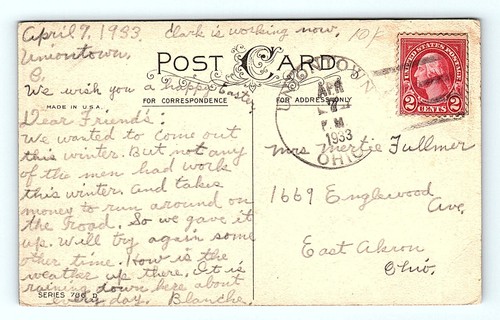 April 7, 1933
Clark is working now.
10/
Uniontown,
O.
POST CARD
We wish you a happy Easter
MADE IN U.S.A.
FOR CORRESPONDENCE
FOR ADDRESS ONLY
Dear Friends:
We wanted to come out
this winter. But not any
of the men had work
this winter. And takes
money to run around on
the road. So we gave it
up. Will try again some
other time. How is the
weather up there. It is
raining down here about
every day. Blanche.
SERIES 706 B
UNIONTOWN
APR
7
PM
1933
OHIO
UNITED STATES POSTAGE
2 CENTS 2
Mrs Mertie Fullmer
1669 Englewood
Ave,
East Akron
Ohio.